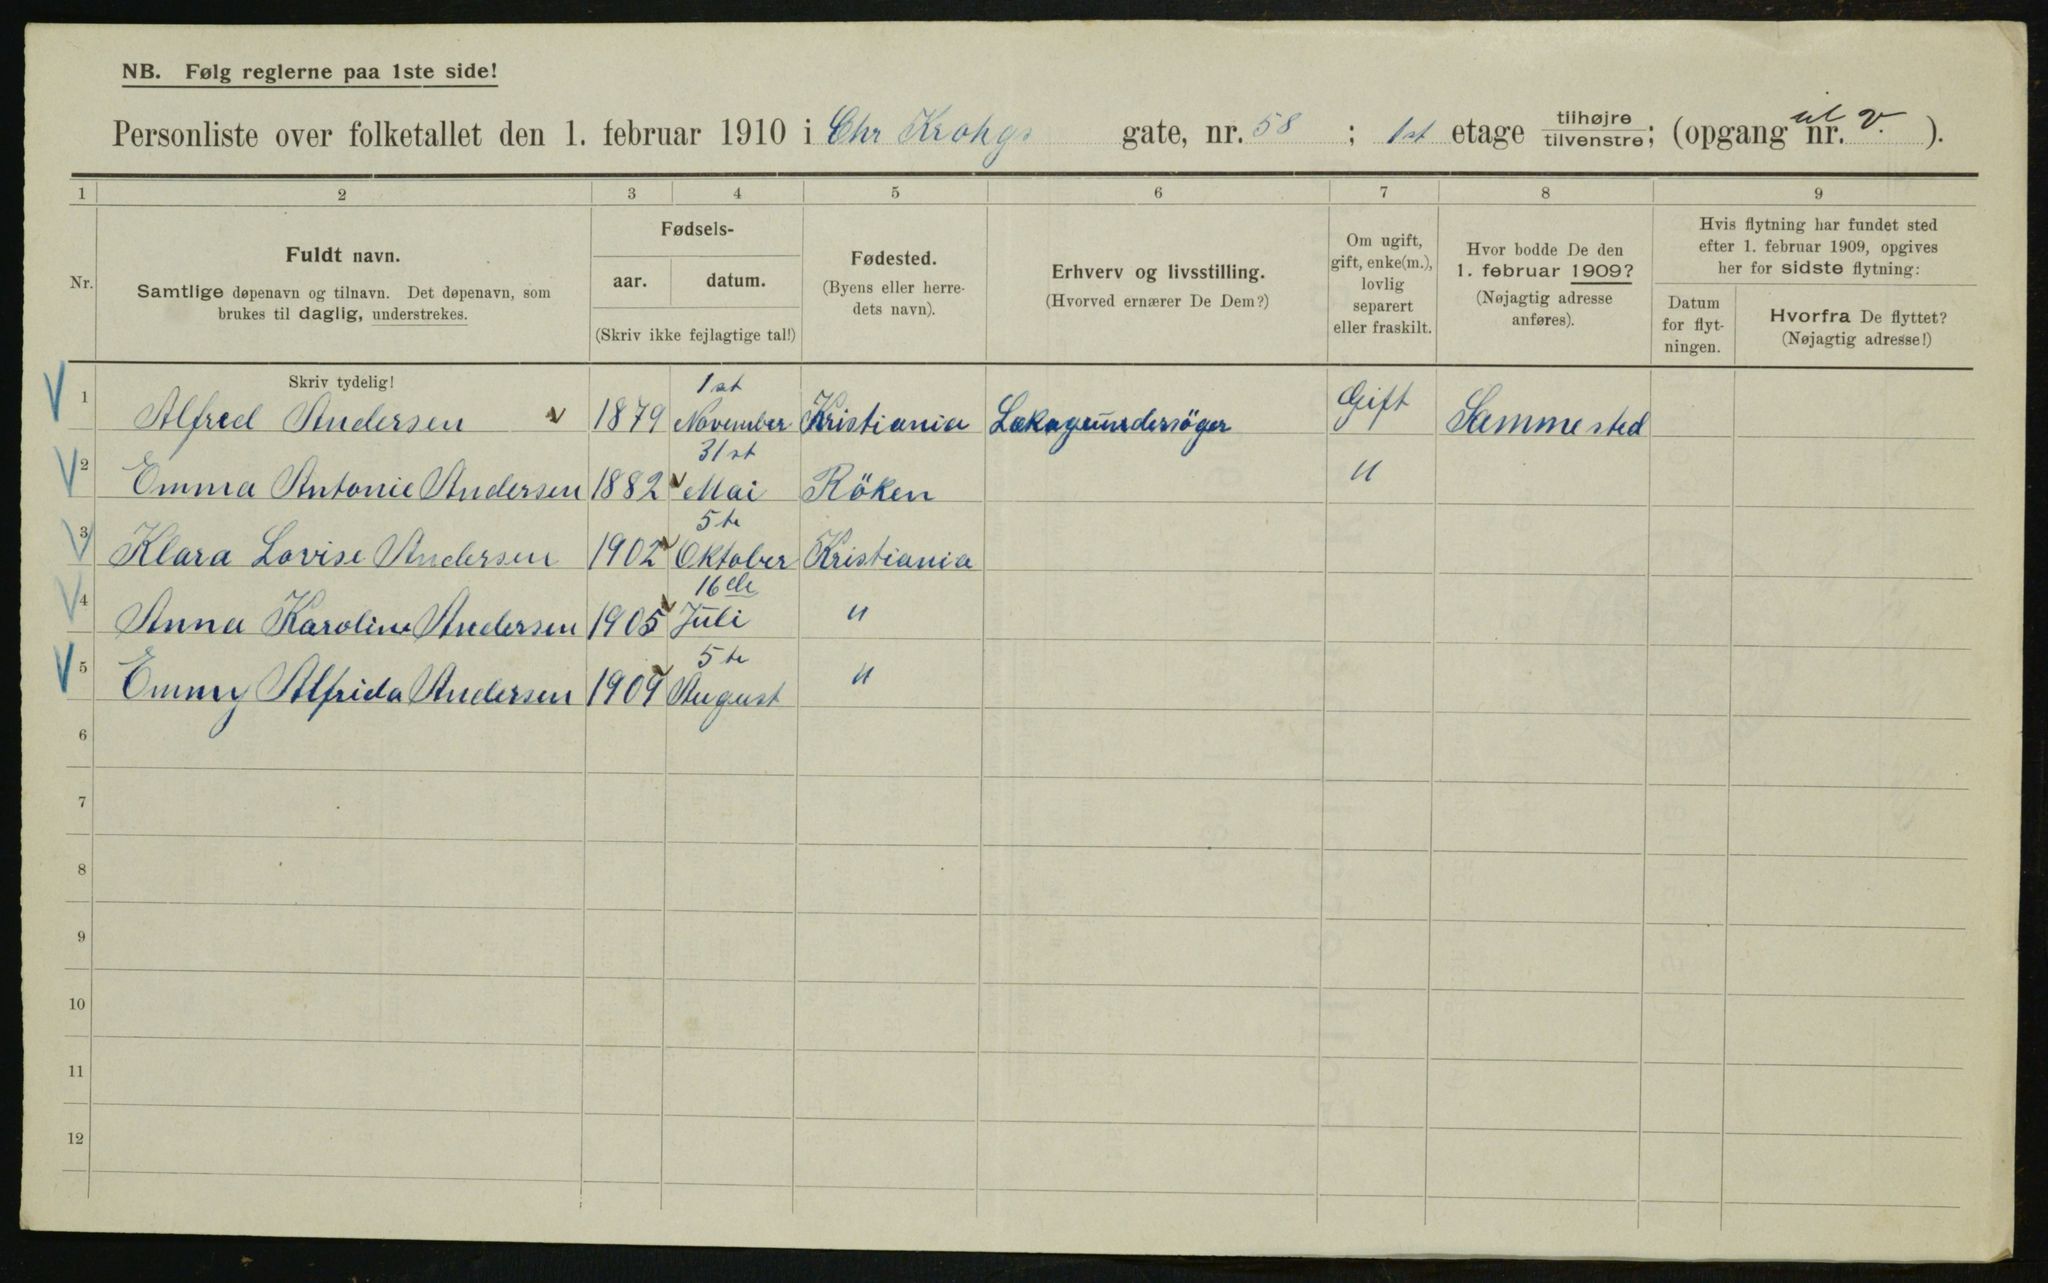 NB. Følg reglerne paa 1ste side!
Personliste over folketallet den 1. februar 1910 i Chr Krohgs gate, nr. 58 ; 1st etage tilhøjre/tilvenstre; (opgang nr. v. ).
1 2 3 4 5 6 7 8 9
Nr.
Fuldt navn.
Samtlige døpenavn og tilnavn. Det døpenavn, som
brukes til daglig, understrekes.
Fødsels-
aar. datum.
(Skriv ikke fejlagtige tal!)
Fødested.
(Byens eller herre-
dets navn).
Erhverv og livsstilling.
(Hvorved ernærer De Dem?)
Om ugift,
gift, enke(m.),
lovlig
separert
eller fraskilt.
Hvor bodde De den
1. februar 1909?
(Nøjagtig adresse
anføres).
Hvis flytning har fundet sted
efter 1. februar 1909, opgives
her for sidste flytning:
Datum
for flyt-
ningen.
Hvorfra De flyttet?
(Nøjagtig adresse!)
Skriv tydelig!
1 Alfred Andersen 1879 1st November Kristiania Lækageundersöger Gift Sammested
2 Emma Antonie Andersen 1882 31st Mai Röken "
3 Klara Lovise Andersen 1902 5te Oktober Kristiania
4 Anna Karoline Andersen 1905 16de Juli "
5 Emmy Alfrida Andersen 1909 5te August "
6
7
8
9
10
11
12